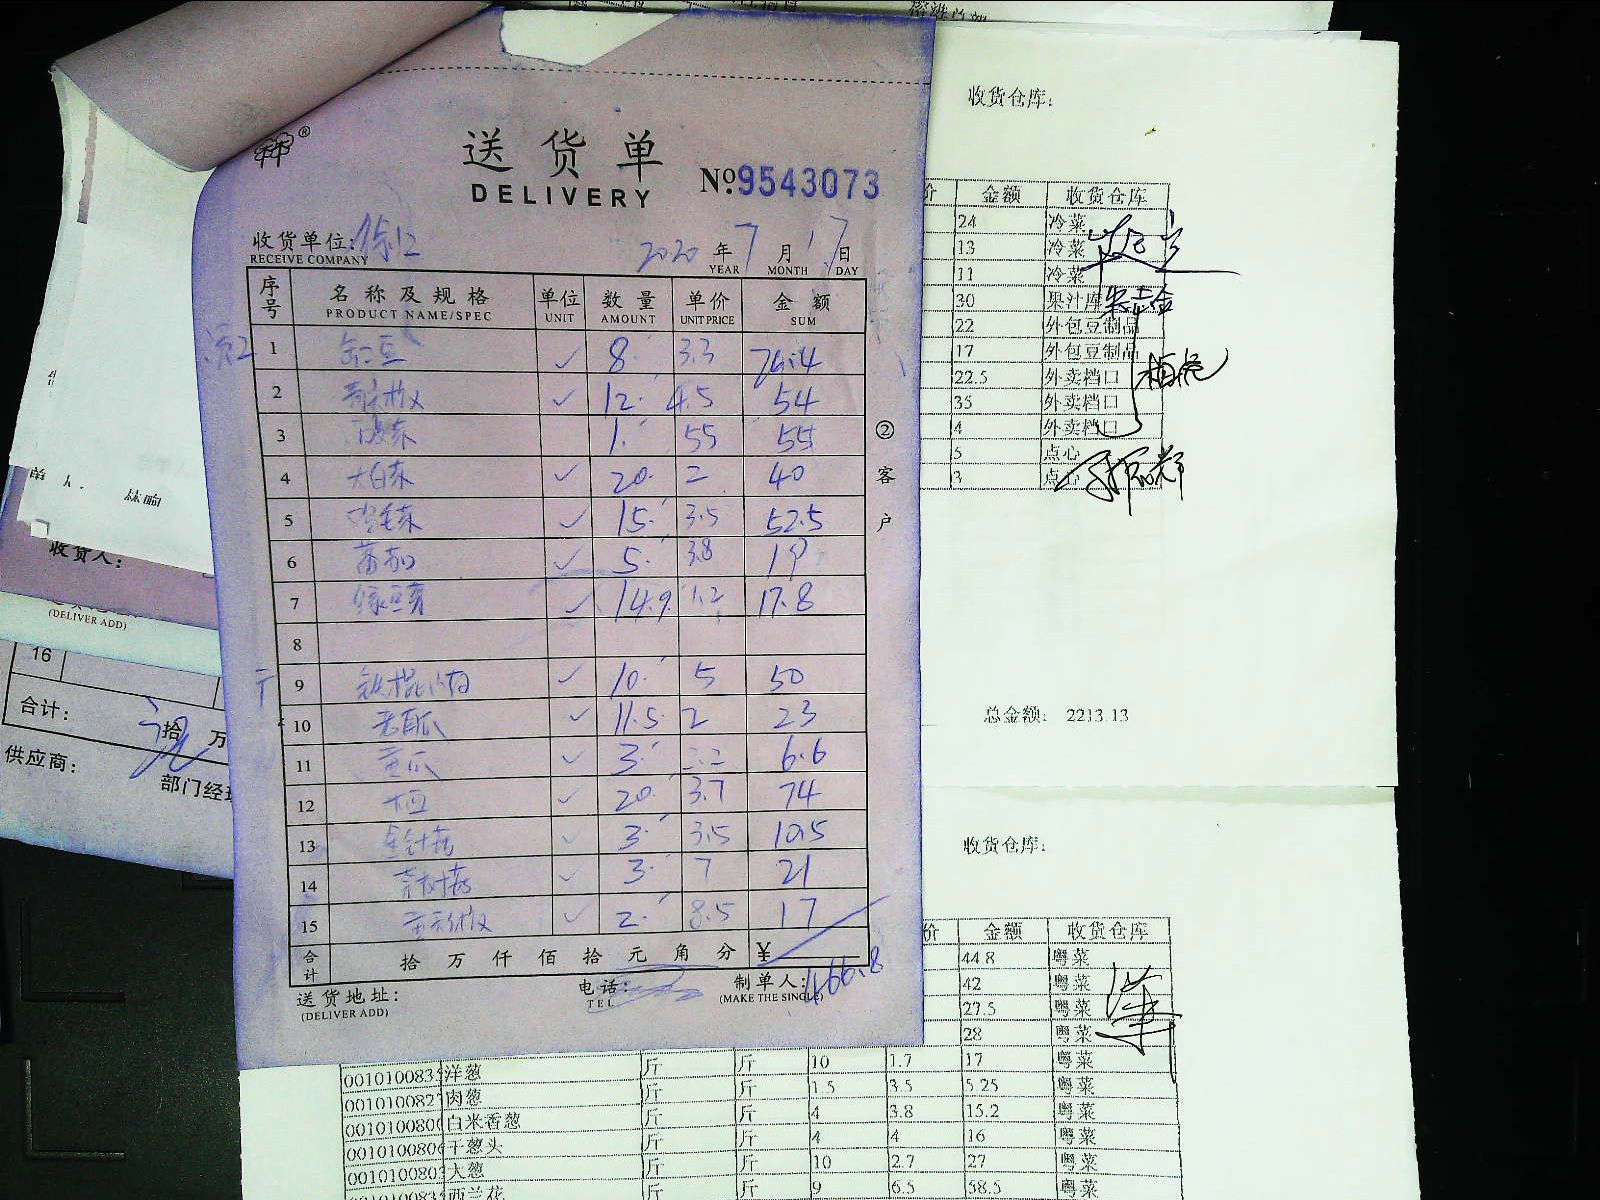 收货仓库:
送货单
DELIVERY
№.9543073
收货单位:
RECEIVE COMPANY
2020 年 7 月 17 日
YEAR MONTH DAY
序号 名称及规格 单位 数量 单价 金额
PRODUCT NAME/SPEC UNIT AMOUNT UNIT PRICE SUM
1 ✓ 8 3.3 26.4
2 ✓ 12 4.5 54
3 1 55 55
4 大白菜 ✓ 20 2 40
5 鸡毛菜 ✓ 15 3.5 52.5
6 番茄 ✓ 5 3.8 19
7 绿豆芽 ✓ 14.9 1.2 17.8
8
9 铁棍山药 ✓ 10 5 50
10 ✓ 11.5 2 23
11 黄瓜 ✓ 3 2.2 6.6
12 ✓ 20 3.7 74
13 金针菇 ✓ 3 3.5 10.5
14 ✓ 3 7 21
15 ✓ 2 8.5 17
合计 拾 万 仟 佰 拾 元 角 分 ¥
466.8
送货地址:
(DELIVER ADD)
电话:
TEL
制单人:
(MAKE THE SINGLE)
②客户
价 金额 收货仓库
24 冷菜
13 冷菜
11 冷菜
30 果汁库
22 外包豆制品
17 外包豆制品
22.5 外卖档口
35 外卖档口
4 外卖档口
5 点心
3 点心
总金额: 2213.13
收货仓库:
价 金额 收货仓库
44.8 粤菜
42 粤菜
27.5 粤菜
28 粤菜
001010083 洋葱 斤 斤 10 1.7 17 粤菜
001010082 肉葱 斤 斤 1.5 3.5 5.25 粤菜
001010080 白米香葱 斤 斤 4 3.8 15.2 粤菜
001010080 干葱头 斤 斤 4 4 16 粤菜
001010080 大葱 斤 斤 10 2.7 27 粤菜
001010083 西兰花 斤 斤 9 6.5 58.5 粤菜
收货人:
(DELIVER ADD)
16
合计: 拾 万
供应商:
部门经理